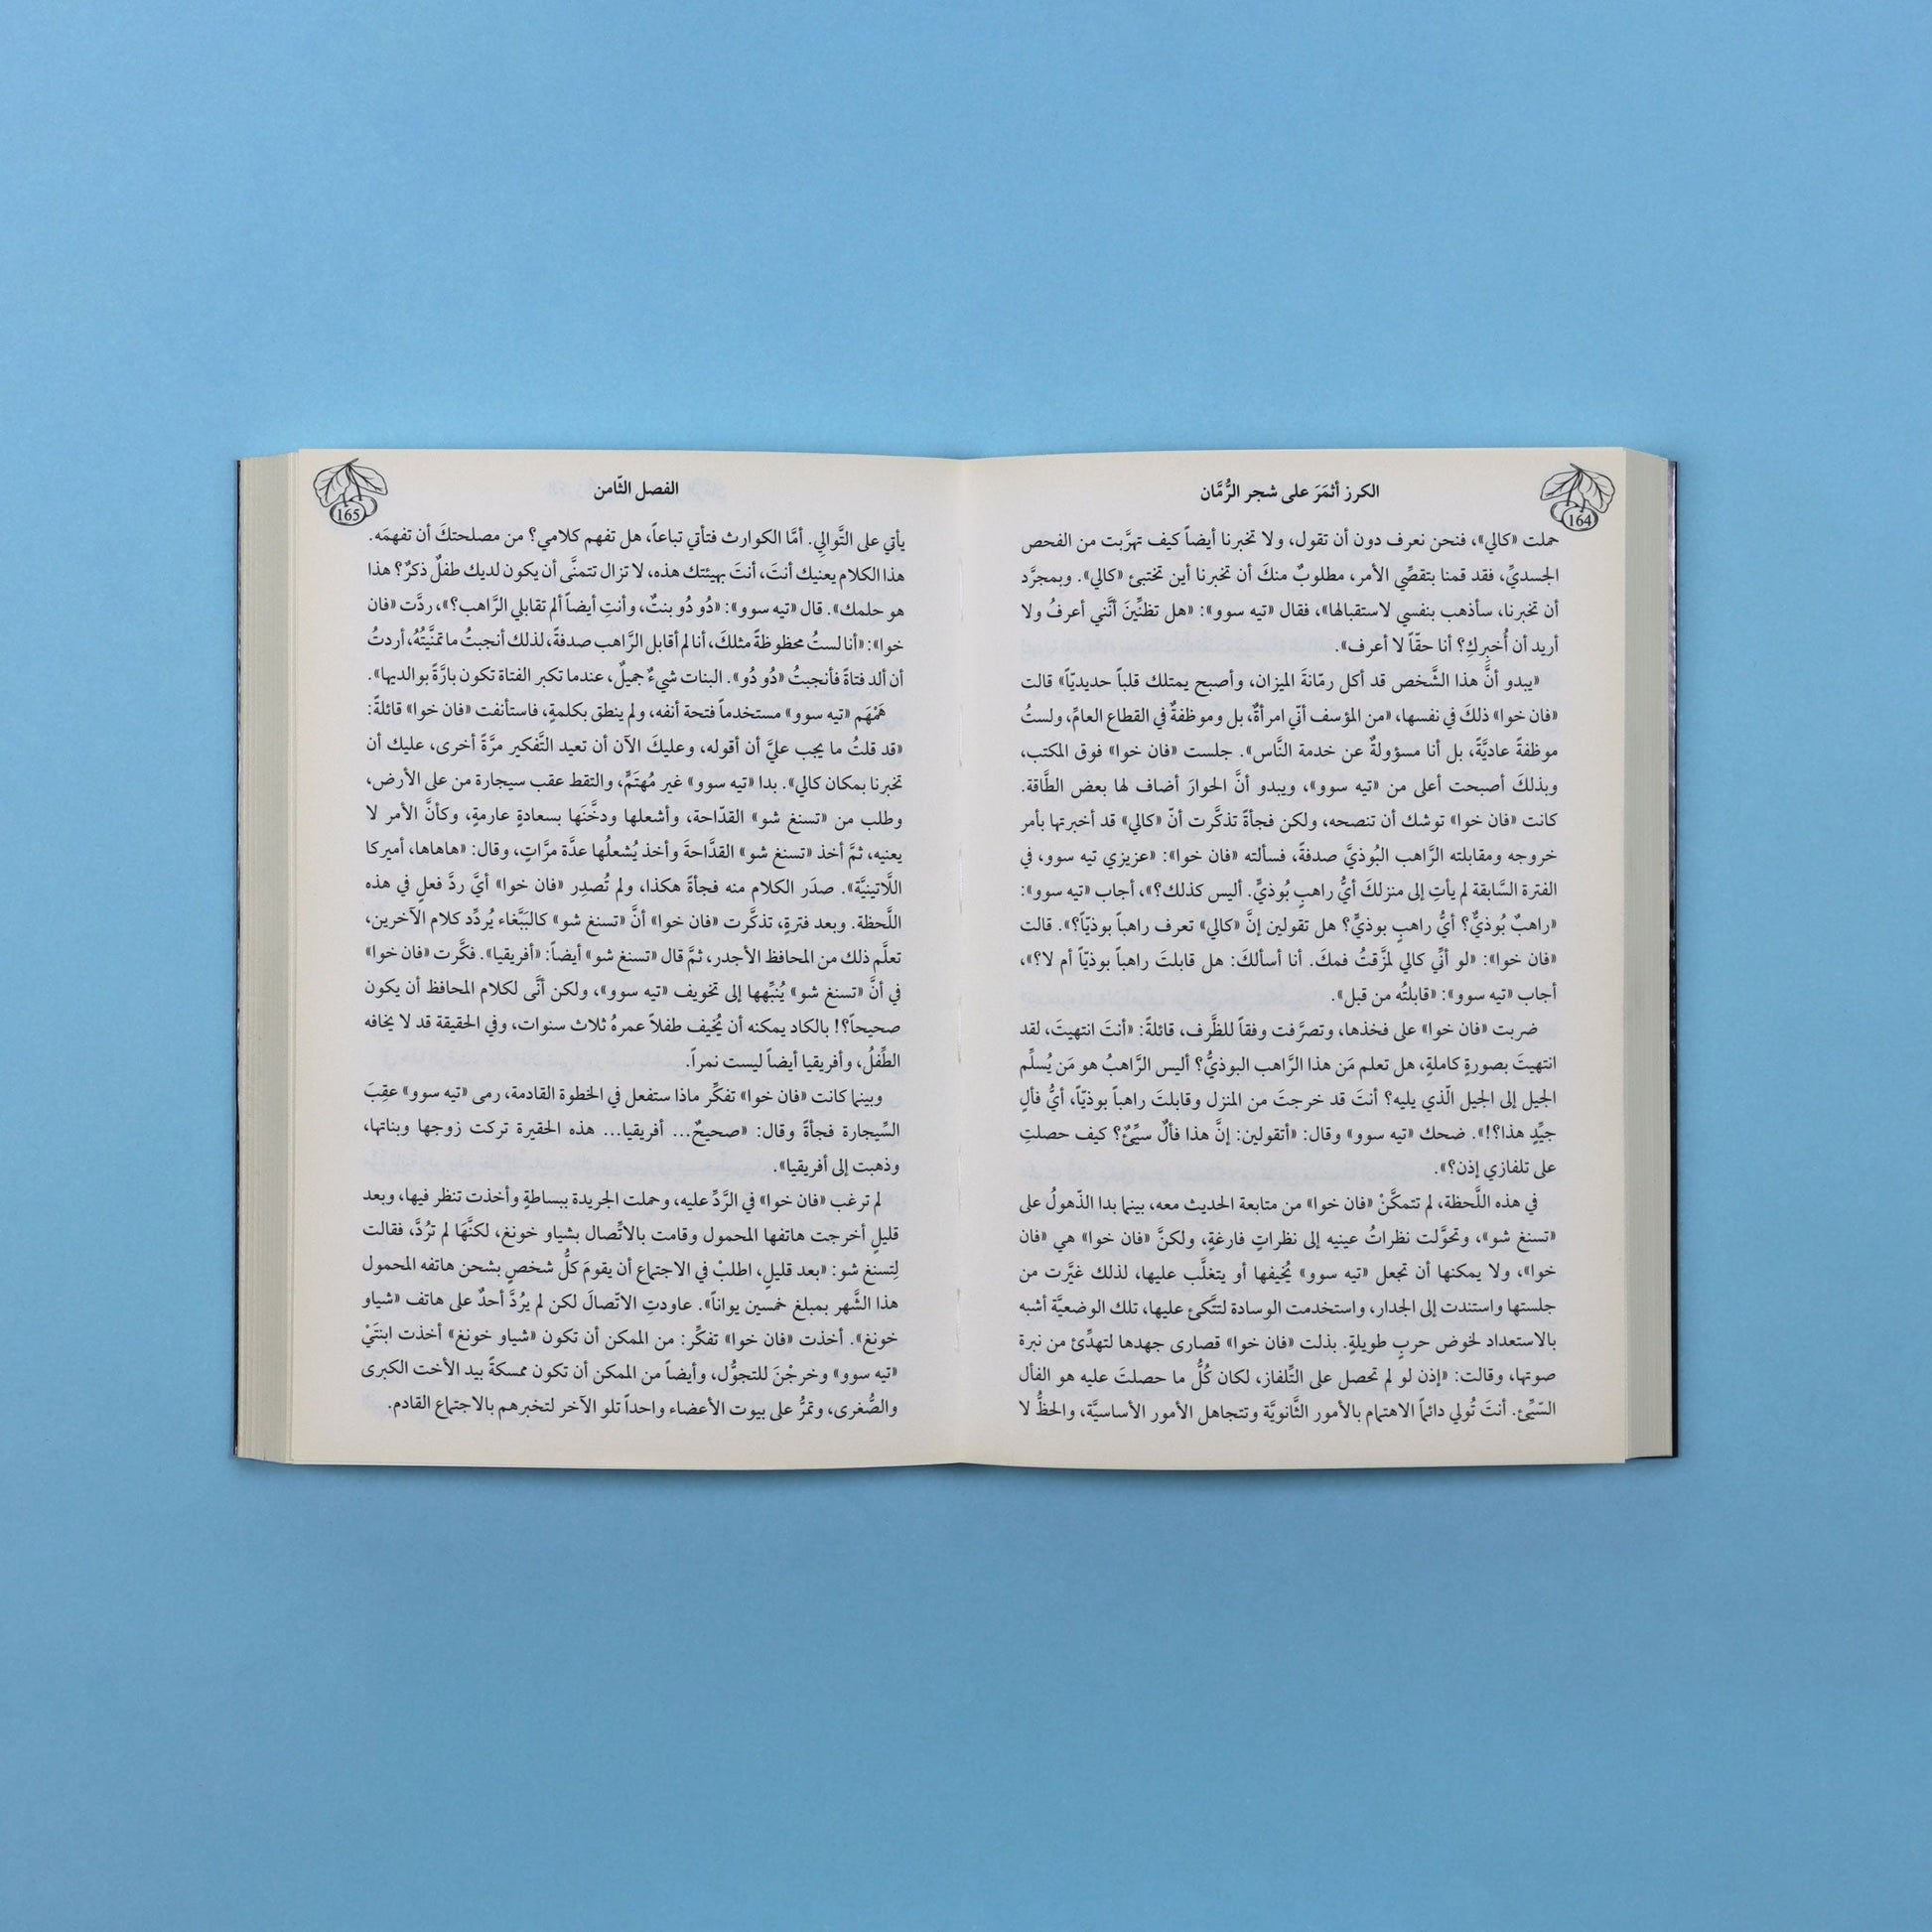 الكرز أثمَرَ على شجر الرُّمَّان
164
حملت «كالي»، فنحن نعرف دون أن تقول، ولا تخبرنا أيضاً كيف تهرَّبت من الفحص
الجسديِّ، فقد قمنا بتقصِّي الأمر، مطلوبٌ منكَ أن تخبرنا أين تختبئ «كالي». وبمجرَّد
أن تخبرنا، سأذهب بنفسي لاستقبالها»، فقال «تيه سوو»: «هل تظنِّينَ أنَّني أعرفُ ولا
أريد أن أُخبركِ؟ أنا حقّاً لا أعرف».
«يبدو أنَّ هذا الشَّخص قد أكل رمّانةَ الميزان، وأصبح يمتلك قلباً حديديّاً» قالت
«فان خوا» ذلكَ في نفسها، «من المؤسف أنّي امرأةٌ، بل وموظفةٌ في القطاع العامِّ، ولستُ
موظفةً عاديَّةً، بل أنا مسؤولةٌ عن خدمة النَّاس». جلست «فان خوا» فوق المكتب،
وبذلكَ أصبحت أعلى من «تيه سوو»، ويبدو أنَّ الحوارَ أضاف لها بعض الطَّاقة.
كانت «فان خوا» توشك أن تنصحه، ولكن فجأةً تذكَّرت أنّ «كالي» قد أخبرتها بأمر
خروجه ومقابلته الرَّاهب البُوذيَّ صدفةً، فسألته «فان خوا»: «عزيزي تيه سوو، في
الفترة السَّابقة لم يأتِ إلى منزلكَ أيُّ راهبٍ بُوذيٍّ. أليس كذلك؟»، أجاب «تيه سوو»:
«راهبٌ بُوذيٌّ؟ أيُّ راهبٍ بوذيٍّ؟ هل تقولين إنَّ «كالي» تعرف راهباً بوذيّاً؟». قالت
«فان خوا»: «لو أنِّي كالي لمزَّقتُ فمكَ. أنا أسألكَ: هل قابلتَ راهباً بوذيّاً أم لا؟»،
أجاب «تيه سوو»: «قابلتُه من قبل».
ضربت «فان خوا» على فخذها، وتصرَّفت وفقاً للظَّرف، قائلةً: «أنتَ انتهيتَ، لقد
انتهيتَ بصورةٍ كاملةٍ، هل تعلم مَن هذا الرَّاهب البوذيُّ؟ أليس الرَّاهبُ هو مَن يُسلِّم
الجيل إلى الجيل الّذي يليه؟ أنتَ قد خرجتَ من المنزل وقابلتَ راهباً بوذيّاً، أيُّ فألٍ
جيِّدٍ هذا؟!». ضحك «تيه سوو» وقال: «أتقولين: إنَّ هذا فألٌ سيِّئٌ؟ كيف حصلتِ
على تلفازي إذن؟».
في هذه اللَّحظة، لم تتمكَّنْ «فان خوا» من متابعة الحديث معه، بينما بدا الذّهولُ على
«تسنغ شو»، وتحوَّلت نظراتُ عينيه إلى نظراتٍ فارغةٍ، ولكنَّ «فان خوا» هي «فان
خوا»، ولا يمكنها أن تجعل «تيه سوو» يُخيفها أو يتغلَّب عليها، لذلك غيَّرت من
جلستها واستندت إلى الجدار، واستخدمت الوسادة لتتَّكئ عليها، تلك الوضعيَّة أشبه
بالاستعداد لخوض حربٍ طويلةٍ. بذلت «فان خوا» قصارى جهدها لتهدِّئ من نبرة
صوتها، وقالت: «إذن لو لم تحصل على التِّلفاز، لكان كُلُّ ما حصلتَ عليه هو الفأل
السّيِّئ. أنتَ تُولي دائماً الاهتمام بالأمور الثَّانويَّة وتتجاهل الأمور الأساسيَّة، والحظُّ لا
الفصل الثّامن
165
يأتي على التَّوالي. أمَّا الكوارث فتأتي تباعاً، هل تفهم كلامي؟ من مصلحتكَ أن تفهمَه.
هذا الكلام يعنيك أنتَ، أنتَ بهيئتك هذه، لا تزال تتمنَّى أن يكون لديك طفلٌ ذكرٌ؟ هذا
هو حلمك». قال «تيه سوو»: «دُو دُو بنتٌ، وأنتِ أيضاً ألم تقابلي الرَّاهب؟»، ردَّت «فان
خوا»: «أنا لستُ محظوظةً مثلكَ، أنا لم أقابل الرَّاهب صدفةً، لذلك أنجبتُ ما تمنَّيتُهُ، أردتُ
أن ألد فتاةً فأنجبتُ «دُو دُو». البنات شيءٌ جميلٌ، عندما تكبر الفتاة تكون بارَّةً بوالديها».
هَمْهَم «تيه سوو» مستخدماً فتحة أنفه، ولم ينطق بكلمةٍ، فاستأنفت «فان خوا» قائلةً:
«قد قلتُ ما يجب عليَّ أن أقوله، وعليكَ الآن أن تعيد التَّفكير مرَّةً أخرى، عليك أن
تخبرنا بمكان كالي». بدا «تيه سوو» غير مُهتَمٍّ، والتقط عقب سيجارة من على الأرض،
وطلب من «تسنغ شو» القدّاحة، وأشعلها ودخَّنَها بسعادةٍ عارمةٍ، وكأنَّ الأمر لا
يعنيه، ثمَّ أخذ «تسنغ شو» القدَّاحةَ وأخذ يُشعلُها عدَّة مرَّاتٍ، وقال: «هاهاها، أميركا
اللَّاتينيَّة». صدَر الكلام منه فجأةً هكذا، ولم تُصدِر «فان خوا» أيَّ ردَّ فعلٍ في هذه
اللَّحظة. وبعد فترةٍ، تذكَّرت «فان خوا» أنَّ «تسنغ شو» كالببَّغاء يُردِّد كلام الآخرين،
تعلَّم ذلك من المحافظ الأجدر، ثمَّ قال «تسنغ شو» أيضاً: «أفريقيا». فكَّرت «فان خوا»
في أنَّ «تسنغ شو» يُنبِّهها إلى تخويف «تيه سوو»، ولكن أنَّى لكلام المحافظ أن يكون
صحيحاً؟! بالكاد يمكنه أن يُخيف طفلاً عمرهُ ثلاث سنوات، وفي الحقيقة قد لا يخافه
الطِّفلُ، وأفريقيا أيضاً ليست نمراً.
وبينما كانت «فان خوا» تفكِّر ماذا ستفعل في الخطوة القادمة، رمى «تيه سوو» عقِبَ
السِّيجارة فجأةً وقال: «صحيحٌ... أفريقيا... هذه الحقيرة تركت زوجها وبناتها،
وذهبت إلى أفريقيا».
لم ترغب «فان خوا» في الرَّدِّ عليه، وحملت الجريدة ببساطةٍ وأخذت تنظر فيها، وبعد
قليلٍ أخرجت هاتفها المحمول وقامت بالاتِّصال بشياو خونغ، لكنَّهَا لم ترُدَّ، فقالت
لِتسنغ شو: «بعد قليلٍ، اطلبْ في الاجتماع أن يقومَ كلُّ شخصٍ بشحن هاتفه المحمول
هذا الشَّهر بمبلغ خمسين يواناً». عاودتِ الاتّصالَ لكن لم يرُدَّ أحدٌ على هاتف «شياو
خونغ». أخذت «فان خوا» تفكِّر: من الممكن أن تكون «شياو خونغ» أخذت ابنتَيْ
«تيه سوو» وخرجْنَ للتجوُّل، وأيضاً من الممكن أن تكون ممسكةً بيد الأخت الكبرى
والصُّغرى، وتمرُّ على بيوت الأعضاء واحداً تلو الآخر لتخبرهم بالاجتماع القادم.